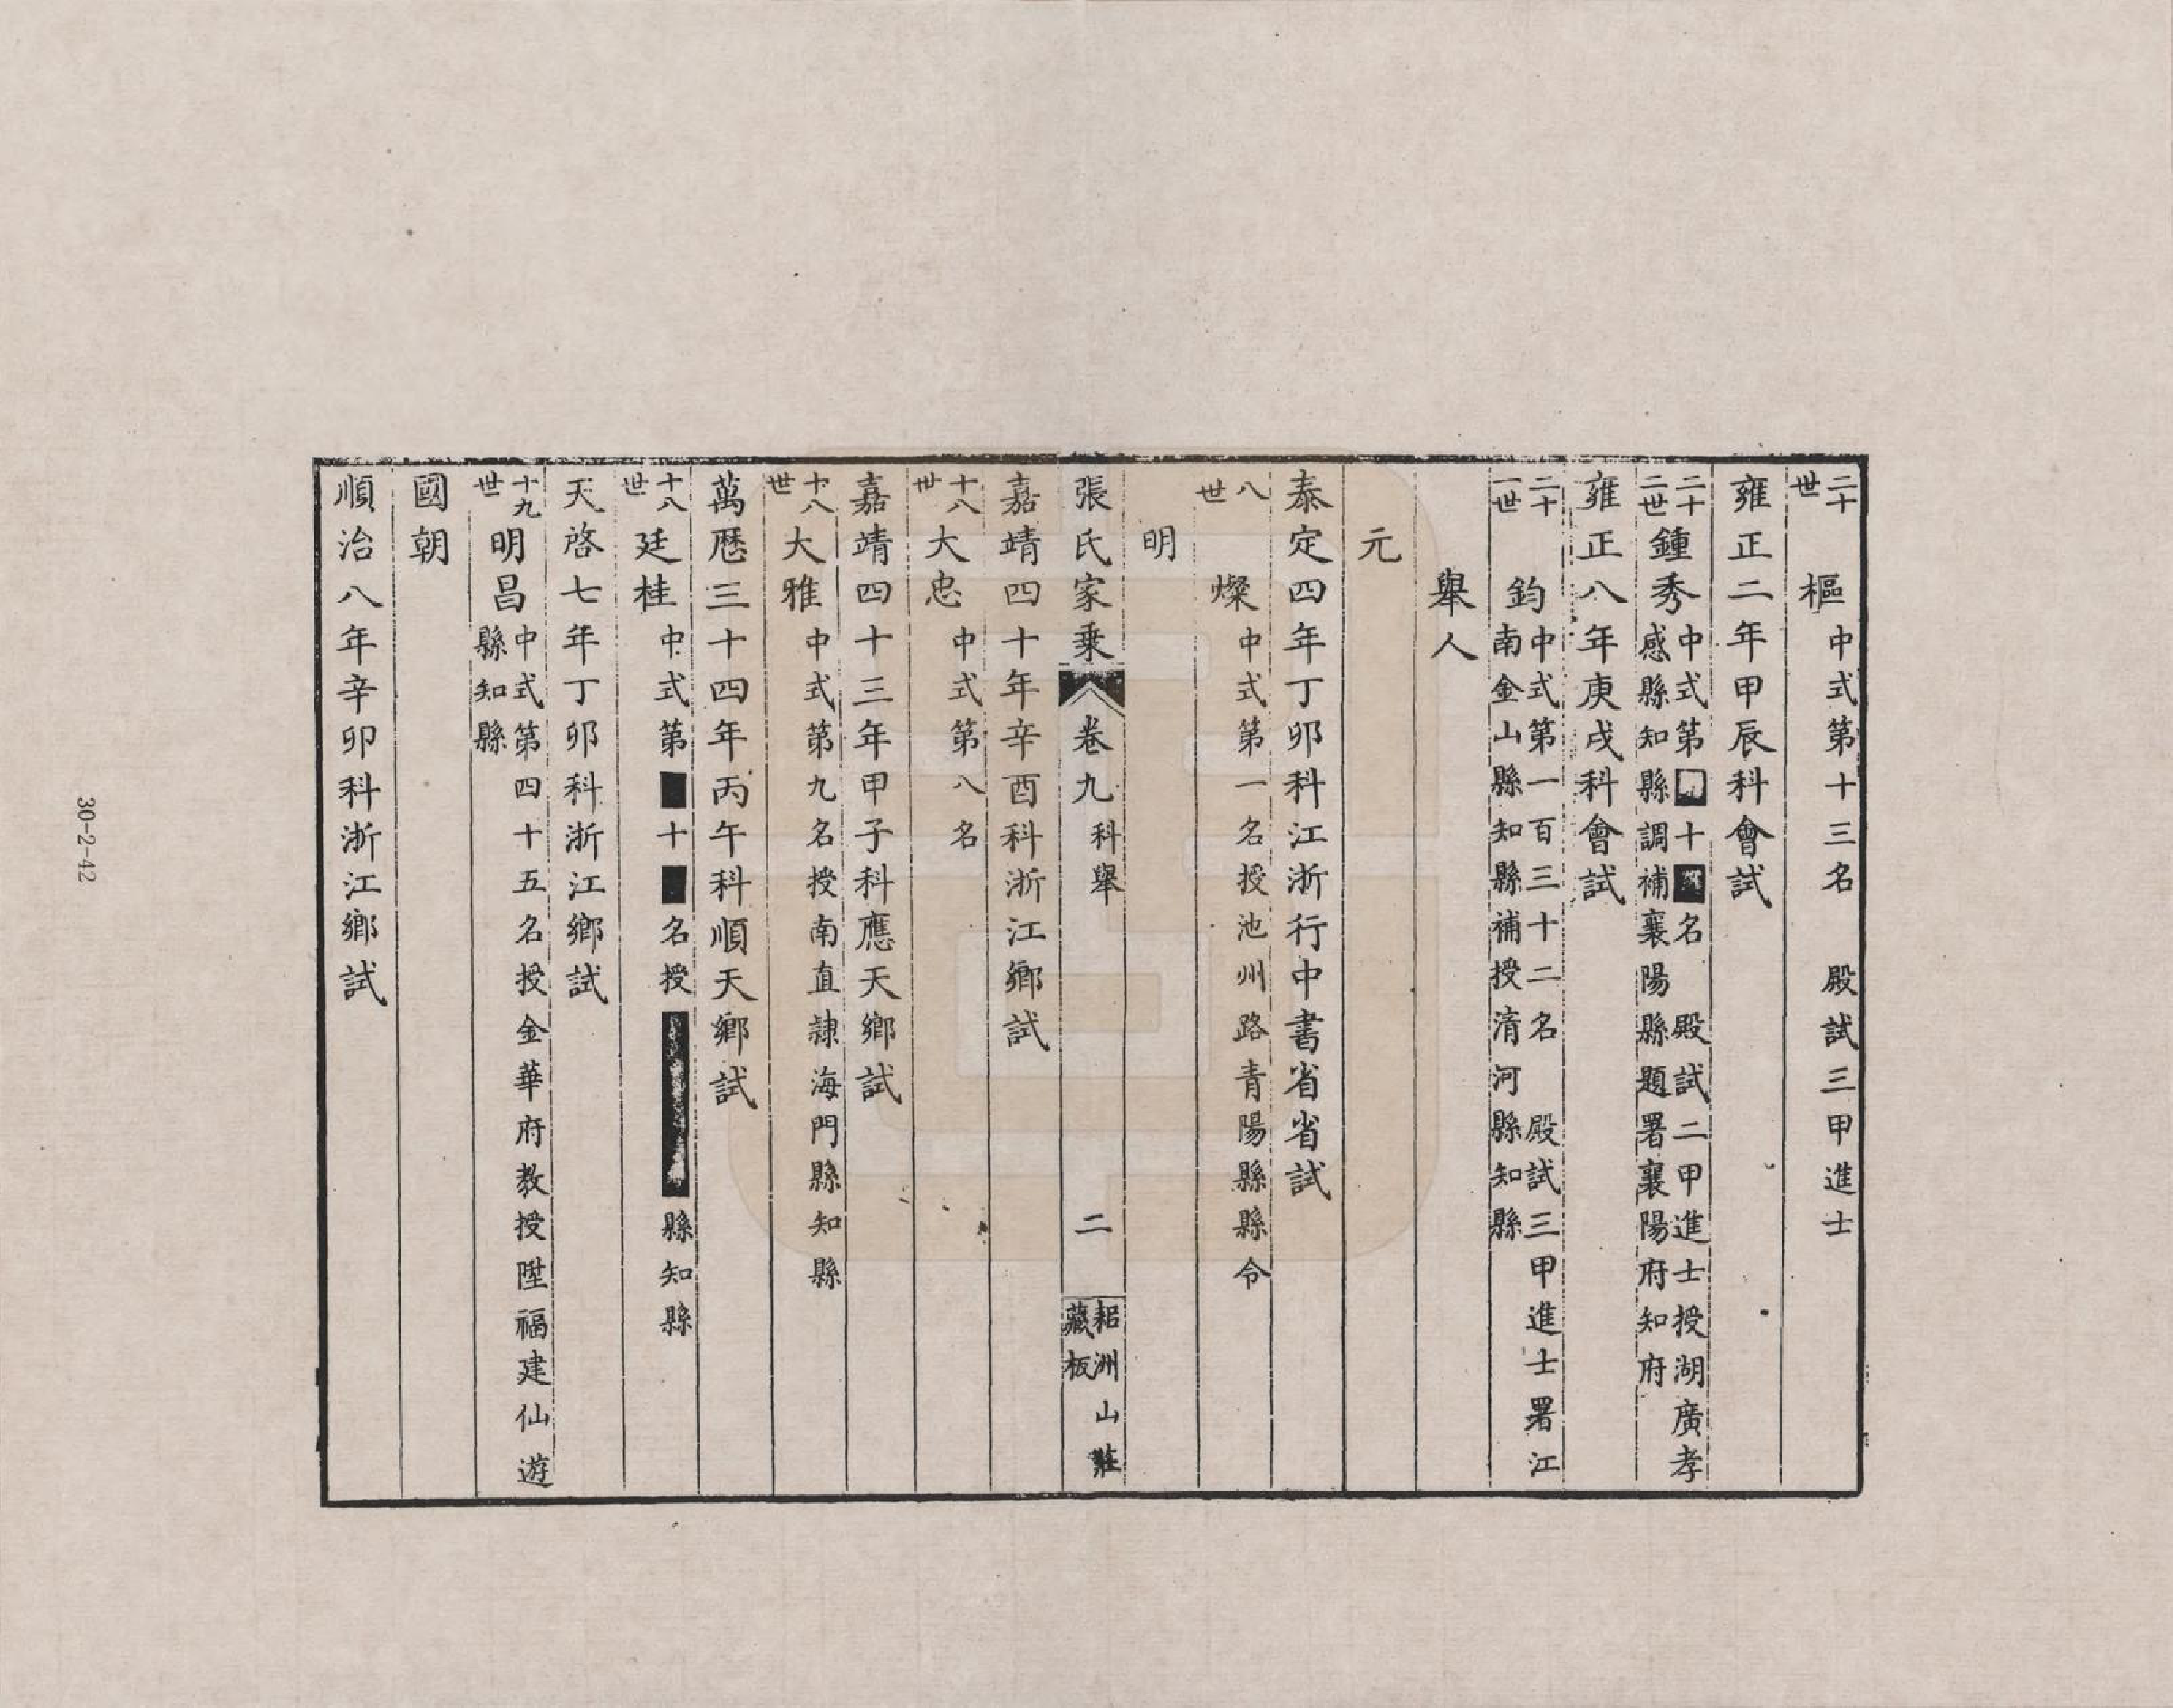 二十世　樞　中式第十三名　殿試三甲進士
雍正二年甲辰科會試
二十二世　鍾秀　中式第■十■名　殿試二甲進士授湖廣孝
感縣知縣調補襄陽縣題署襄陽府知府
雍正八年庚戌科會試
二十一世　鈞　中式第一百三十二名　殿試三甲進士署江
南金山縣知縣補授清河縣知縣
舉人
元
泰定四年丁卯科江浙行中書省省試
八世　燦　中式第一名授池州路青陽縣縣令
明
張氏家乗　卷九　科舉　二　耜洲山莊藏板
嘉靖四十年辛酉科浙江鄉試
十八世　大忠　中式第八名
嘉靖四十三年甲子科應天鄉試
十八世　大雅　中式第九名授南直隷海門縣知縣
萬厯三十四年丙午科順天鄉試
十八世　廷桂　中式第■十■名授■■■■縣知縣
天啓七年丁卯科浙江鄉試
十九世　明昌　中式第四十五名授金華府教授陞福建仙遊
縣知縣
國朝
順治八年辛卯科浙江鄉試
30-2-42